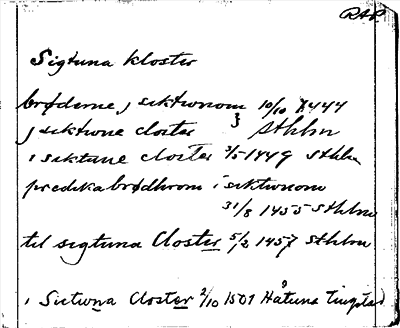 RAP.
Sigtuna kloster
brøderne j siktwnom 10/10 1444
j siktwne closter } Sthlm
i siktune closter 3/5 1449 Sthlm
predikabrødhrom i siktwnom
31/8 1455 Sthlm
til sigtuna Closter 5/2 1457 Sthlm
i Sictwna Closter 2/10 1501 Håtuna tingstad